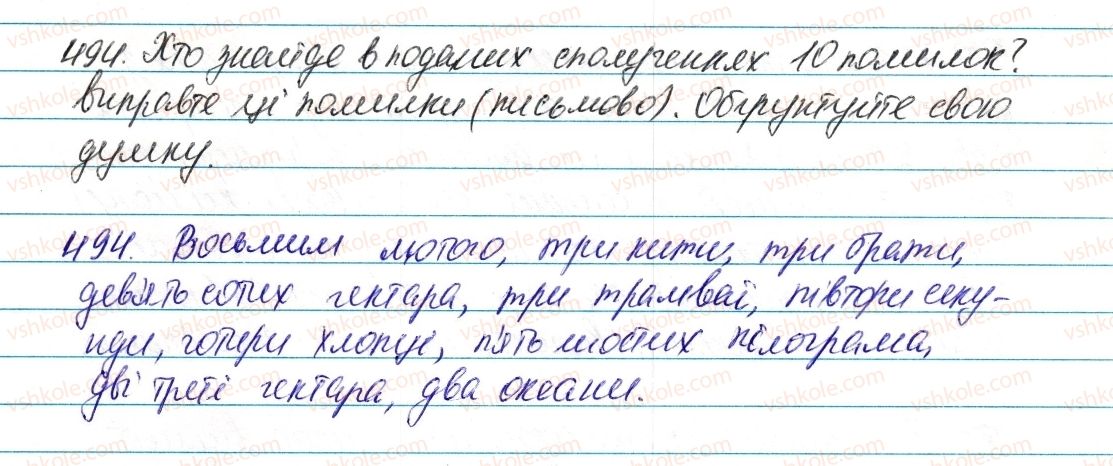 494. Хто знайде в поданих сполученнях 10 помилок?
Виправте ці помилки (письмово). Обґрунтуйте свою
думку.
494. Восьмим лютого, три кити, три брати,
дев'ять сотих гектара, три трамваї, півтори секу-
нди, чотири хлопці, п'ять шостих кілограма,
дві треті гектара, два океани.